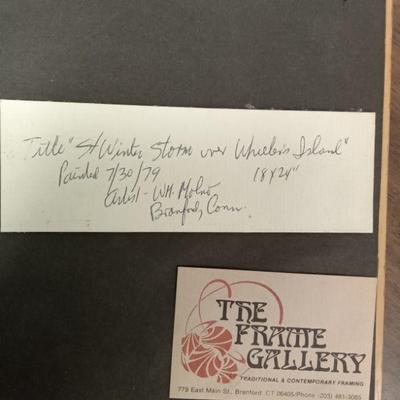 Title "St Winter Storm over Wheelers Island"
Painted 7/30/79 18x24"
Artist - WM. Molno
Branford, Conn.
THE
FRAME
GALLERY
TRADITIONAL & CONTEMPORARY FRAMING
779 East Main St., Branford, CT 06405/Phone (203) 481-3085